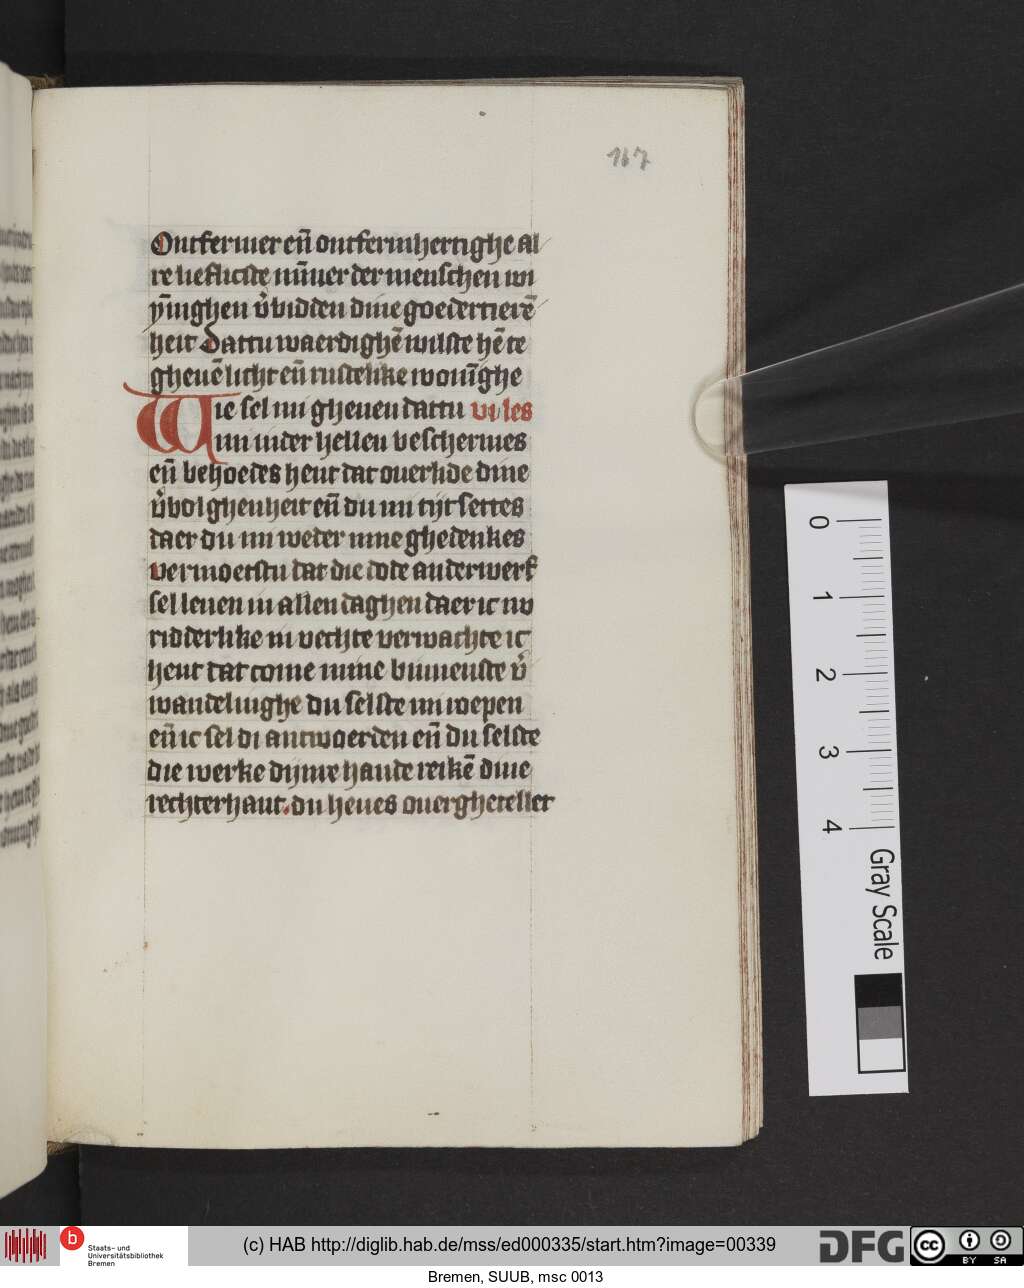 167
Ontfermer en̄ ontfermhertighe al
re lieflicste mīner der menschen wi
ȳninghen v̓bidden dine goedertierē
heit Dattu waerdighē wilste hē te
gheuē licht en̄ rustelike wonīghe
Wie sel mi gheuen dattu vi les
mi inder hellen beschermes
en̄ behoedes hent dat ouerlide dine
v̓bolghenheit en̄ du mi tijt settes
daer du mi weder mine ghedenkes
vermoetstu dat die dode anderwerf
sel leuen in allen daghen daer ic nv
ridderlike in vechte verwachte ic
hent dat come mine binnenste v̓
wandelinghe du selste mi roepen
en̄ ic sel di antwoerden en̄ du selste
die werke dijnre hande reikē dine
rechterhant. du heues ouerghetellet
0
1
2
3
4
Gray Scale
b
Staats- und
Universitätsbibliothek
Bremen
(c) HAB http://diglib.hab.de/mss/ed000335/start.htm?image=00339
DFG
cc
BY SA
Bremen, SUUB, msc 0013